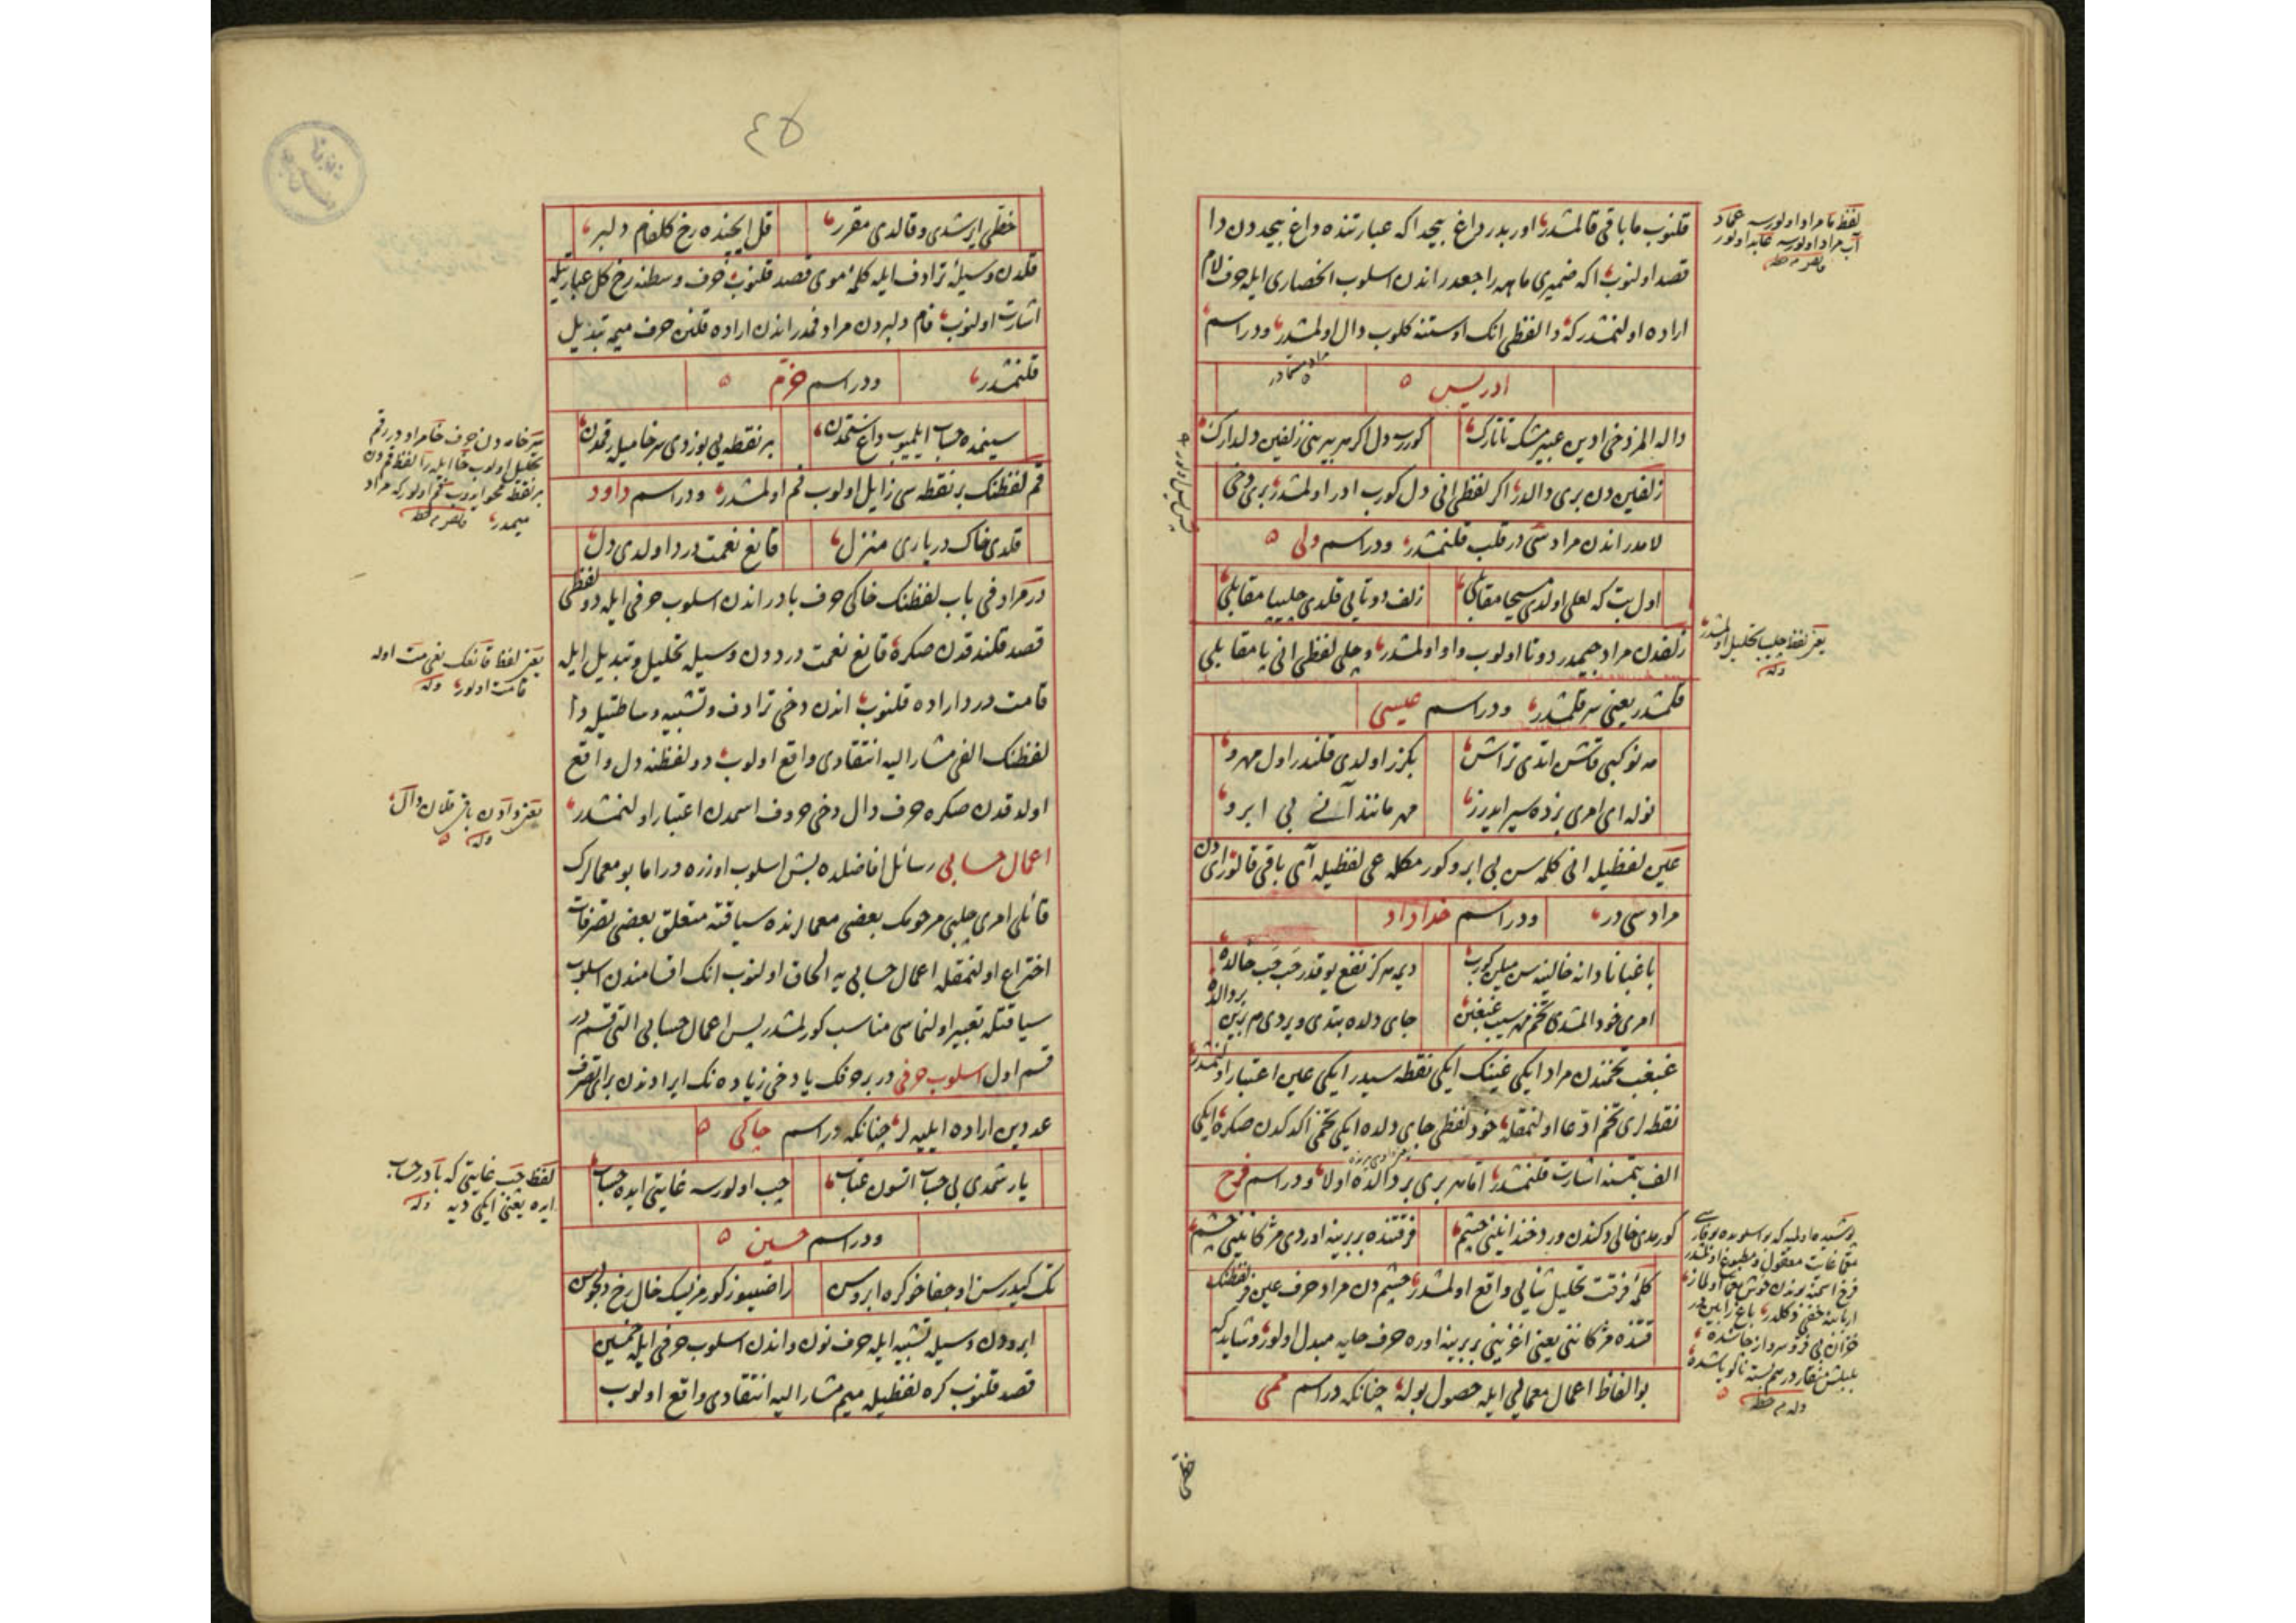 قلنوب ما باقی قالمشدر اور بدر داغ بیجد اکه عبارتنده داغ بیجد دن دا
قصد اولنوب اکه ضمیری ماهه راجعدر اندن اسلوب انحصاری ایله حرف لام
اراده اولنمشدر که دا لفظی انک اوستنه کلوب دال اولمشدر ودراسم
ادریس
داله المز دخی ادین عبیر مشک تاتارک
کورسه دل اکر هر بیرینی زلفین دلدارک
زلفین دن بری دالدر اکر لفظی انی دل کورب ادر اولمشدر بری دخی
لامدر اندن مراد سی در قلب قلنمشدر ودراسم ولی
اول بت که لعلی اولدی مسیحا مقابلی
زلف دوتایی قلدی چلیپا مقابلی
زلفدن مراد جیمدر دوتا اولوب واو اولمشدر و چلی لفظی انی پا مقابلی
قلمشدر یعنی سر قلمشدر ودراسم عیسی
مه نو کبی قاشن اتدی تراش
بکزر اولدی قلندر اول مهرو
نوله ای امری بزده سیر ایدرز
مهر مانند آنی بی ابرو
عین لفظیله انی کلمه سن بی ابرو کورمکله عی لفظیله آی باقی قالور ای دن
مراد سی در ودراسم خداداد
باغبانا دانه خالینه سن میلین کورب
دیمه هرکز نفع یوقدر حب حب خالده
امری خود المشدی تخم مهر سیب غبغبن
جای دلده بتدی ویردی هم برین بر دالده
غبغب تخمندن مراد ایکی غینک ایکی نقطه سیدر ایکی عین اعتبار اولنمشدر
نقطه لری تخم ادعا اولنمقله خود لفظی جای دلده ایکی تخمی اکدکدن صکره ایکی
الف بتمسنه اشارت قلنمشدر اما هر بری بر دالده اولا ودراسم فرخ
کورمدی خالی دکندن ورد خندانینی چشم
فرقتنده بربرینه اوردی مژکانینی چشم
کلمۀ فرقت تحلیل ثنایی واقع اولمشدر چشم دن مراد حرف عین فر لفظنک
قتنده مژکاننی یعنی اغزینی بربرینه اوره حرف خایه مبدل اولور وشاید که
بو الفاظ اعمال معمایی ایله حصول بوله چنانکه دراسم ممی
خطی
لفظ ما مراد اولورسه عماد
آب مراد اولورسه عابد اولور
یعنی لفظ چلیپا تحلیل اولمشدر
وله
٤٥
خطی ایرشدی وقالدی مقرر
قل ایچنده رخ کلفام دلبر
قلدن وسیلۀ ترادف ایله کلمۀ موی قصد قلنوب حرف وسطنه رخ کل عبارتیله
اشارت اولنوب فام دلبردن مراد فمدر اندن اراده قلنن حرف میمه تبدیل
قلنمشدر ودراسم خرم
سینمده حساب ایلیوب داغ ستمدن
بر نقطه یی بوزدی سر خامیله رقمدن
قم لفظنک بر نقطه سی زایل اولوب فم اولمشدر ودراسم داود
قلدی خاک در یاری منزل
قانع نعمت درد اولدی دل
در مرادفی باب لفظنک خاکی حرف بادر اندن اسلوب حرفی ایله دو لفظی
قصد قلندقدن صکره قانع نعمت درددن وسیله تحلیل وتبدیل ایله
قامت دردا اراده قلنوب اندن دخی ترادف وتشبیه وساطتیله دا
لفظنک الفی مشارالیه انتقادی واقع اولوب دو لفظنه دل واقع
اولدقدن صکره حرف دال دخی حروف اسمدن اعتبار اولنمشدر
اعمال حسابی رسائل افاضلده بش اسلوب اوزره در اما بو معمالرک
قائلی امری چلبی مرحومک بعضی معمالرنده سیاقته متعلق بعضی تصرفات
اختراع اولنمقله اعمال حسابی یه الحاق اولنوب انک اقسامندن اسلوب
سیاقتله تعبیر اولنماسی مناسب کورلمشدر پس اعمال حسابی التی قسم در
قسم اول اسلوب حرفی در بر حرفک یا دخی زیاده نک ایرادندن برای تصرف
عددین اراده ایلیه لر چنانکه دراسم چاکی
یار شمدی بی حساب اتسون عتاب
جیب اولورسه غایتی ایده حساب
ودراسم حسین
تک کیدرسن او جفاخو کره ابروسن
راضییوز کورمزیسک خال رخ دلجوسن
ابرودن وسیله تشبیه ایله حرف نون واندن اسلوب حرفی ایله خمسین
قصد قلنوب کره لفظیله میم مشارالیه انتقادی واقع اولوب
یعنی لفظ قانعک نعی مت اوله
قامت اولور وله
لفظ جیب غایتی که بادر حساب
ایده یعنی ایکی دیه وله